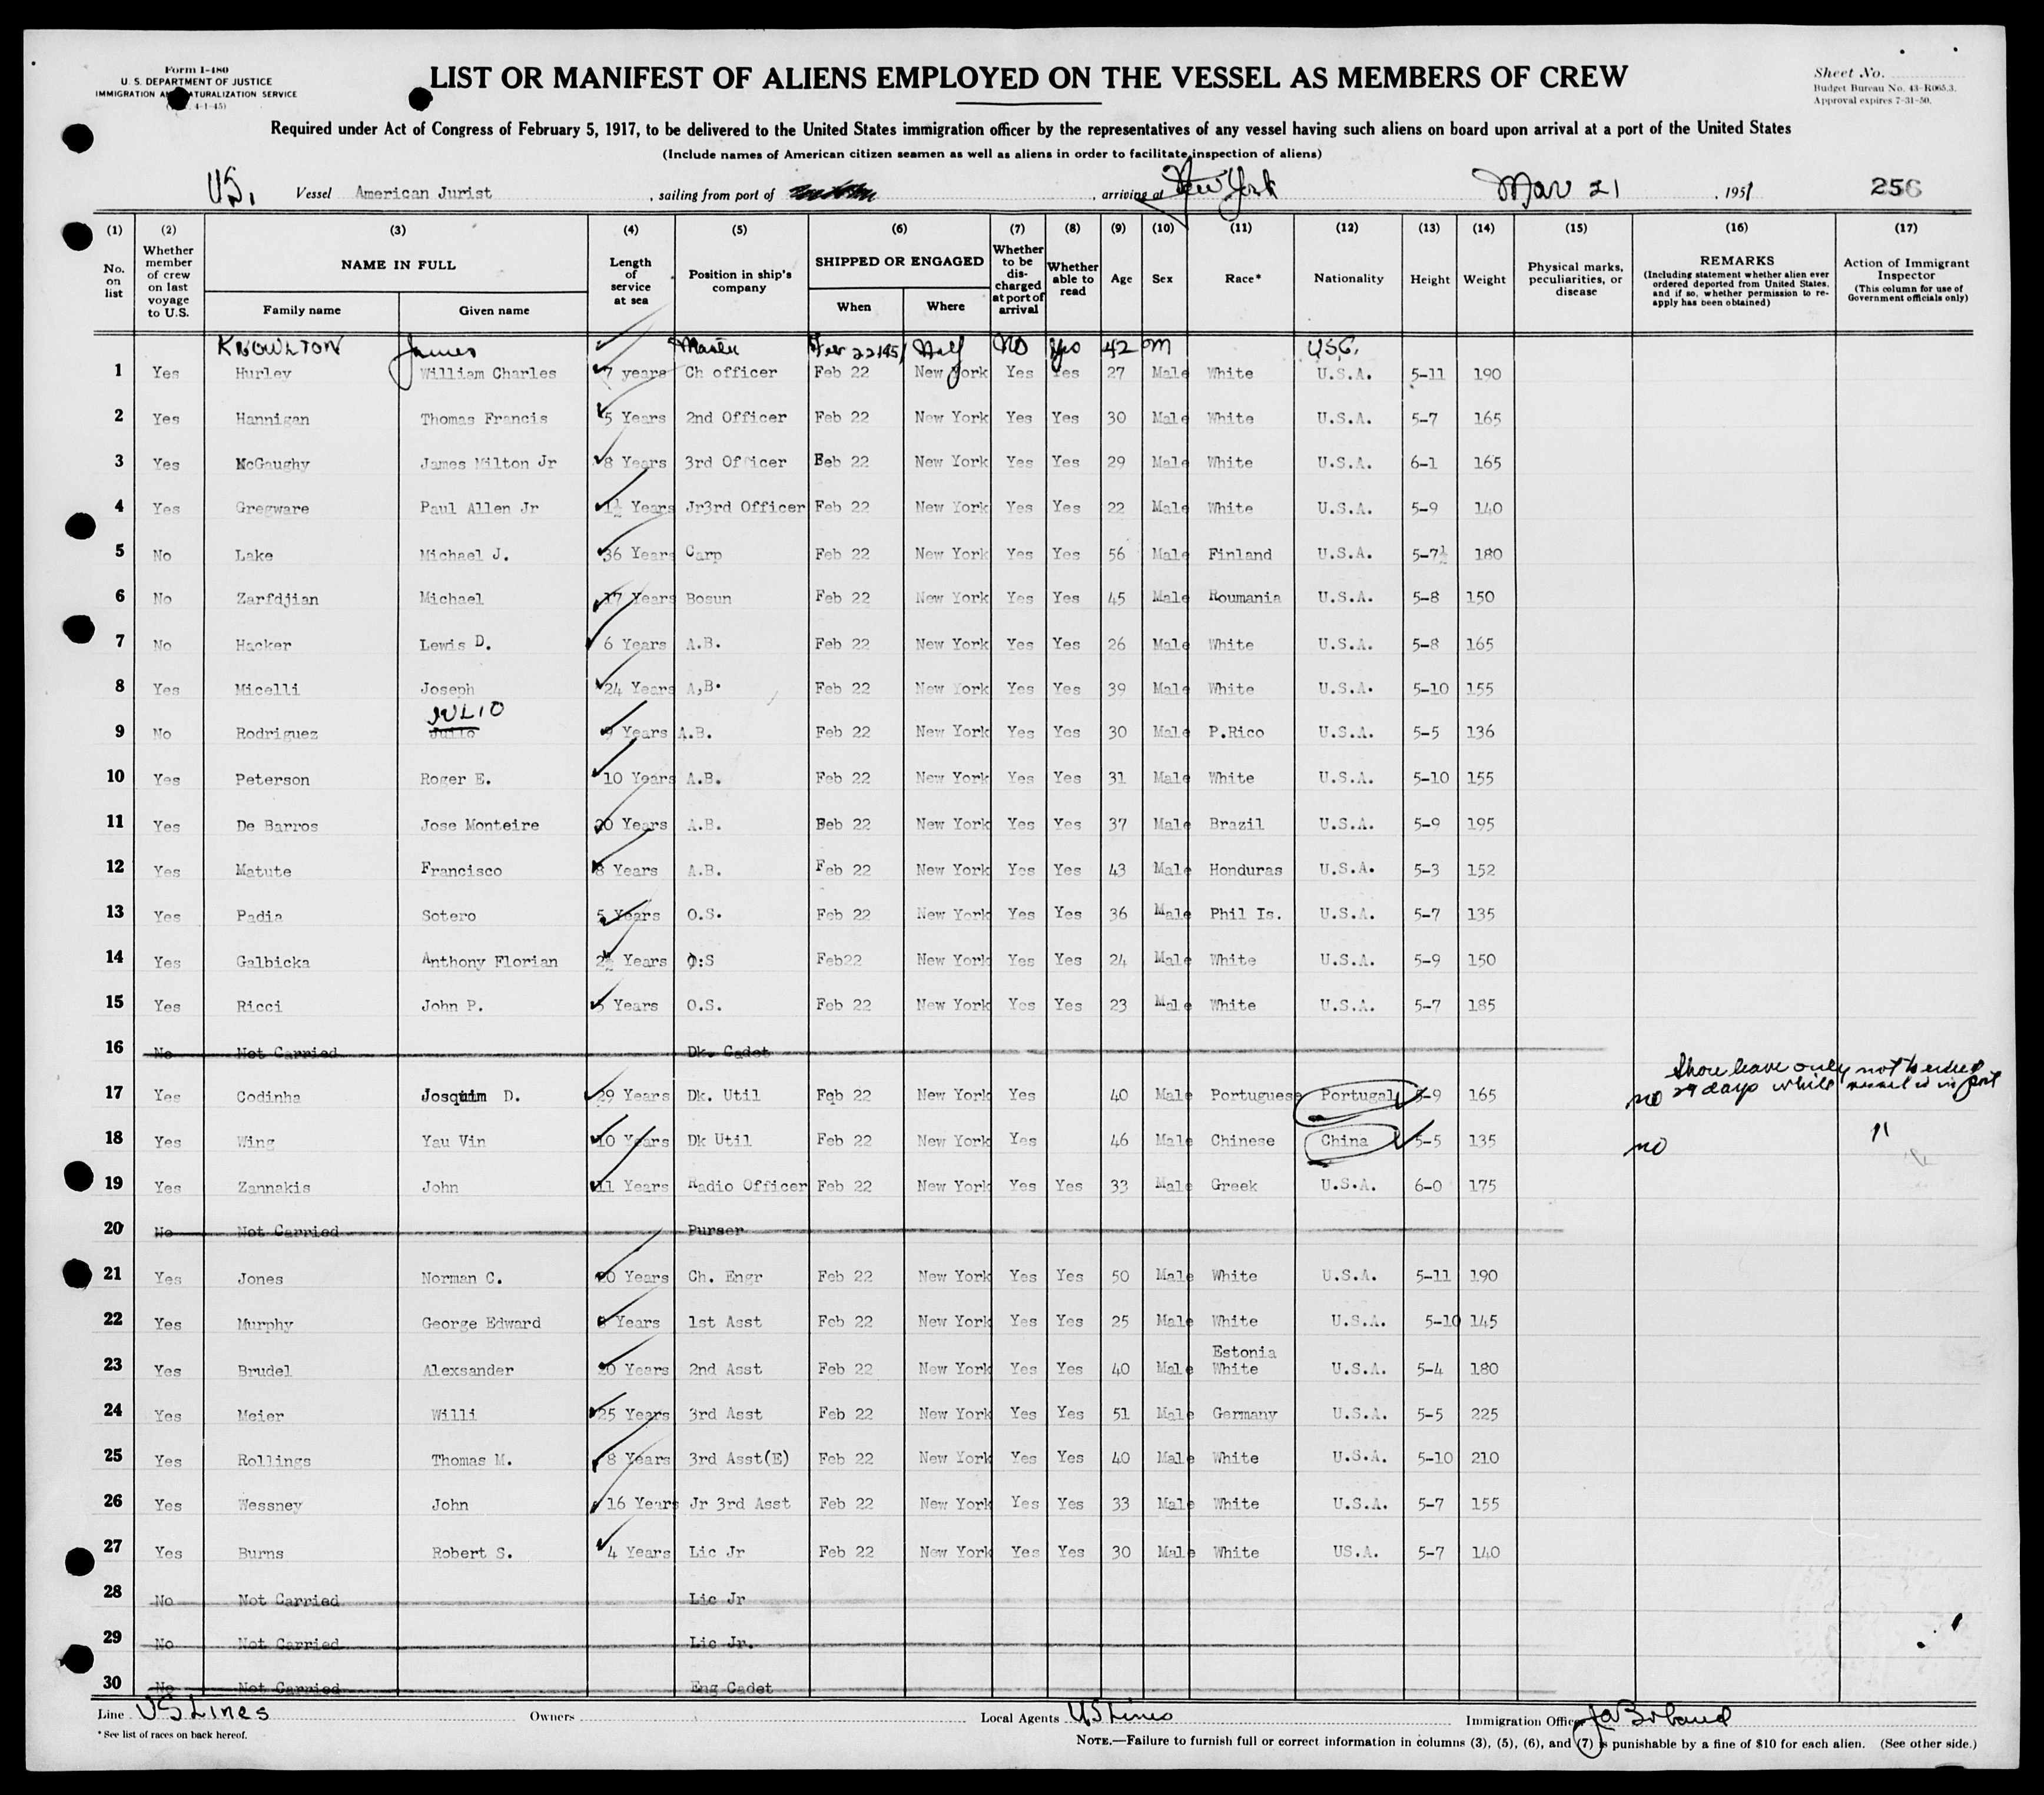 Form I-480
U. S. DEPARTMENT OF JUSTICE
IMMIGRATION AND NATURALIZATION SERVICE
4-1-45)
LIST OR MANIFEST OF ALIENS EMPLOYED ON THE VESSEL AS MEMBERS OF CREW
Sheet No.
Budget Bureau No. 43-R065.3.
Approval expires 7-31-50.
Required under Act of Congress of February 5, 1917, to be delivered to the United States immigration officer by the representatives of any vessel having such aliens on board upon arrival at a port of the United States
(Include names of American citizen seamen as well as aliens in order to facilitate inspection of aliens)
US. Vessel American Jurist , sailing from port of , arriving at New York Mar 21 , 1951 256
(1) (2) (3) (4) (5) (6) (7) (8) (9) (10) (11) (12) (13) (14) (15) (16) (17)
No. on list
Whether member of crew on last voyage to U.S.
NAME IN FULL
Family name Given name
Length of service at sea
Position in ship's company
SHIPPED OR ENGAGED
When Where
Whether to be discharged at port of arrival
Whether able to read
Age Sex Race* Nationality Height Weight
Physical marks, peculiarities, or disease
REMARKS
(Including statement whether alien ever ordered deported from United States, and if so, whether permission to reapply has been obtained)
Action of Immigrant Inspector
(This column for use of Government officials only)
KNOWLTON James Master Feb 22 1951 No Yes 42 M U.S.C.
1 Yes Hurley William Charles 7 years Ch officer Feb 22 New York Yes Yes 27 Male White U.S.A. 5-11 190
2 Yes Hannigan Thomas Francis 5 Years 2nd Officer Feb 22 New York Yes Yes 30 Male White U.S.A. 5-7 165
3 Yes McGaughy James Milton Jr 8 Years 3rd Officer Feb 22 New York Yes Yes 29 Male White U.S.A. 6-1 165
4 Yes Gregware Paul Allen Jr 1½ Years Jr3rd Officer Feb 22 New York Yes Yes 22 Male White U.S.A. 5-9 140
5 No Lake Michael J. 36 Years Carp Feb 22 New York Yes Yes 56 Male Finland U.S.A. 5-7½ 180
6 No Zarfdjian Michael 17 Years Bosun Feb 22 New York Yes Yes 45 Male Roumania U.S.A. 5-8 150
7 No Hacker Lewis D. 6 Years A.B. Feb 22 New York Yes Yes 26 Male White U.S.A. 5-8 165
8 Yes Micelli Joseph 24 Years A,B. Feb 22 New York Yes Yes 39 Male White U.S.A. 5-10 155
JULIO
9 No Rodriguez Julio Years A.B. Feb 22 New York Yes Yes 30 Male P.Rico U.S.A. 5-5 136
10 Yes Peterson Roger E. 10 Years A.B. Feb 22 New York Yes Yes 31 Male White U.S.A. 5-10 155
11 Yes De Barros Jose Monteire 20 Years A.B. Feb 22 New York Yes Yes 37 Male Brazil U.S.A. 5-9 195
12 Yes Matute Francisco 8 Years A.B. Feb 22 New York Yes Yes 43 Male Honduras U.S.A. 5-3 152
13 Yes Padia Sotero 5 Years O.S. Feb 22 New York Yes Yes 36 Male Phil Is. U.S.A. 5-7 135
14 Yes Galbicka Anthony Florian 2½ Years O:S Feb22 New York Yes Yes 24 Male White U.S.A. 5-9 150
15 Yes Ricci John P. 5 Years O.S. Feb 22 New York Yes Yes 23 Male White U.S.A. 5-7 185
16 No Not Carried Dk. Cadet
Shore leave only not to exceed
29 days while vessel is in port
17 Yes Codinha Josquim D. 29 Years Dk. Util Feb 22 New York Yes 40 Male Portuguese Portugal 5-9 165 no
18 Yes Wing Yau Vin 10 Years Dk Util Feb 22 New York Yes 46 Male Chinese China 5-5 135 no "
19 Yes Zannakis John 11 Years Radio Officer Feb 22 New York Yes Yes 33 Male Greek U.S.A. 6-0 175
20 No Not Carried Purser
21 Yes Jones Norman C. 20 Years Ch. Engr Feb 22 New York Yes Yes 50 Male White U.S.A. 5-11 190
22 Yes Murphy George Edward 8 Years 1st Asst Feb 22 New York Yes Yes 25 Male White U.S.A. 5-10 145
Estonia
23 Yes Brudel Alexsander 20 Years 2nd Asst Feb 22 New York Yes Yes 40 Male White U.S.A. 5-4 180
24 Yes Meier Willi 25 Years 3rd Asst Feb 22 New York Yes Yes 51 Male Germany U.S.A. 5-5 225
25 Yes Rollings Thomas M. 8 Years 3rd Asst(E) Feb 22 New York Yes Yes 40 Male White U.S.A. 5-10 210
26 Yes Wessney John 16 Years Jr 3rd Asst Feb 22 New York Yes Yes 33 Male White U.S.A. 5-7 155
27 Yes Burns Robert S. 4 Years Lic Jr Feb 22 New York Yes Yes 30 Male White US.A. 5-7 140
28 No Not Carried Lic Jr
29 No Not Carried Lic Jr.
30 No Not Carried Eng Cadet
Line US Lines Owners Local Agents US Lines Immigration Officer
* See list of races on back hereof.
NOTE.—Failure to furnish full or correct information in columns (3), (5), (6), and (7) is punishable by a fine of $10 for each alien. (See other side.)